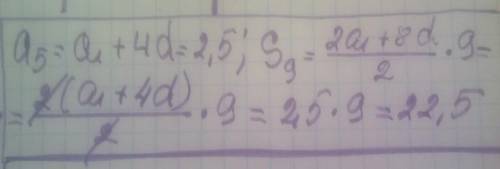 a₅ = a₁ + 4d = 2,5; S₉ = (2a₁ + 8d)/2 · 9 =
= 2(a₁ + 4d)/2 · 9 = 2,5 · 9 = 22,5